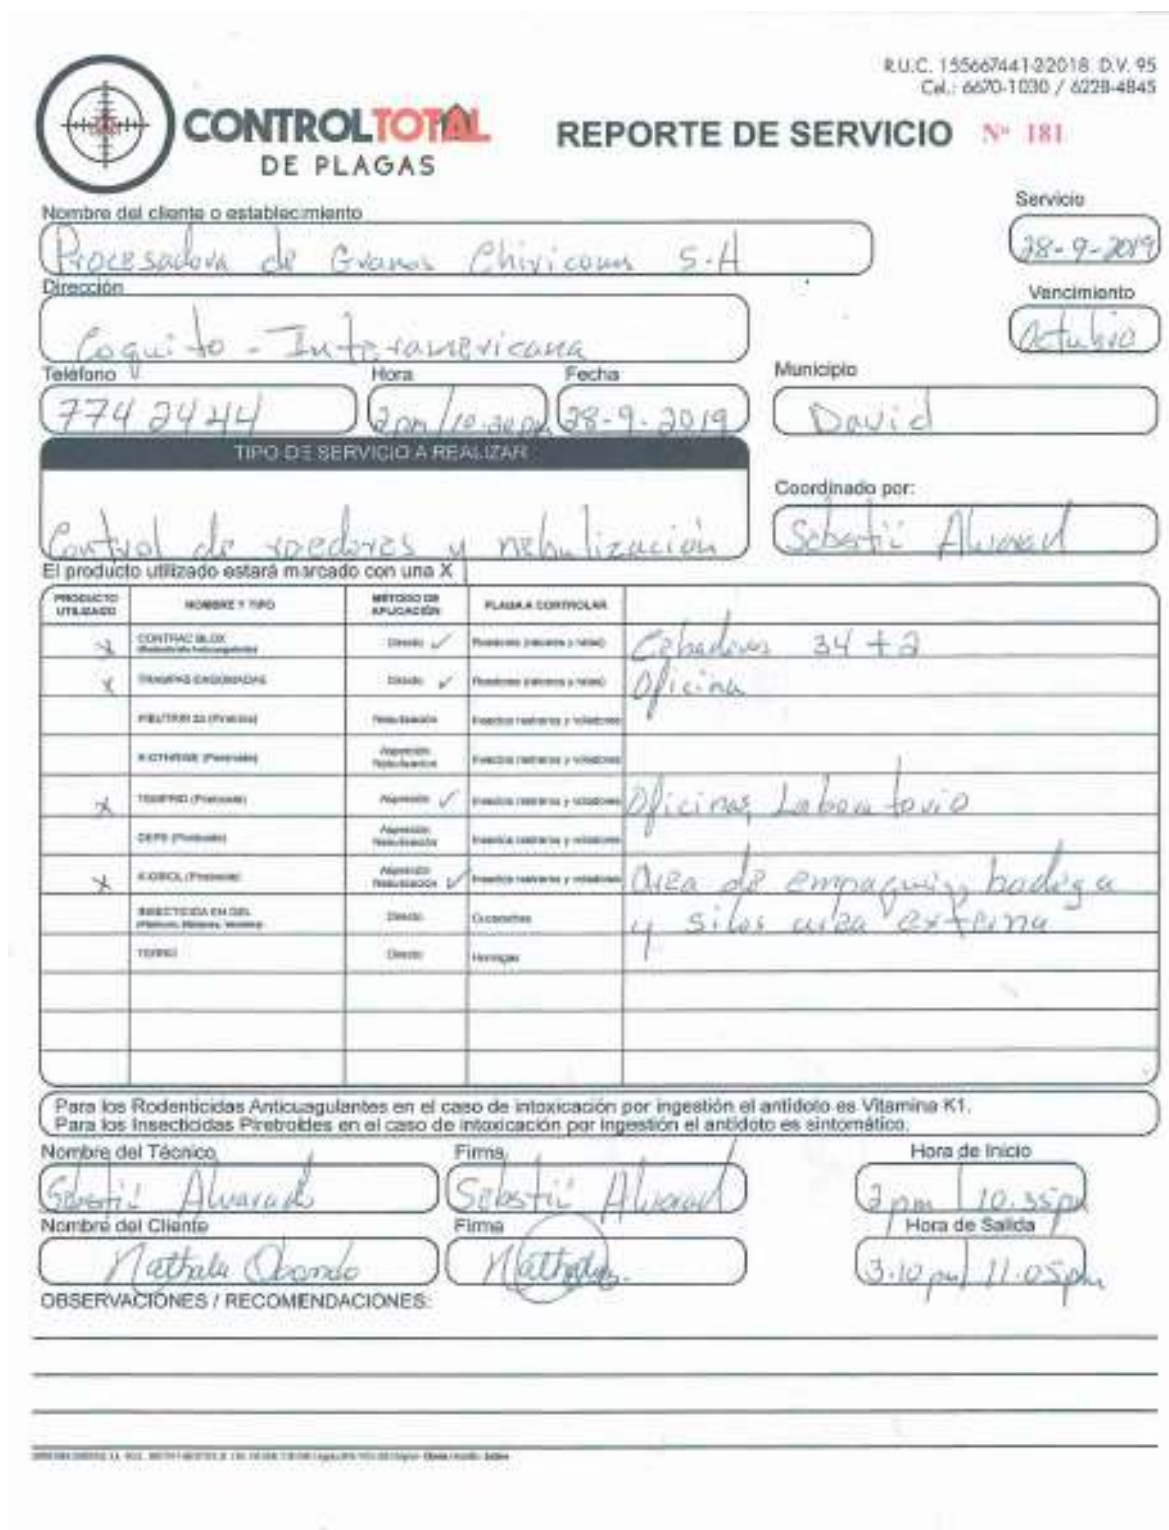 R.U.C. 155667441-2-2018 D.V. 95
Cel.: 6670-1030 / 6228-4845
CONTROLTOTAL
DE PLAGAS
REPORTE DE SERVICIO Nº 181
Nombre del cliente o establecimiento
Servicio
Procesadora de Granos Chiricanos S.A
28-9-2019
Dirección
Vencimiento
Coquito - Interamericana
Octubre
Teléfono Hora Fecha Municipio
774 2444 2 pm/10:20 pm 28-9-2019 David
TIPO DE SERVICIO A REALIZAR
Coordinado por:
Control de roedores y nebulización
Alvarad
El producto utilizado estará marcado con una X
PRODUCTO UTILIZADO NOMBRE Y TIPO MÉTODO DE APLICACIÓN PLAGA A CONTROLAR
X CONTRAC BLOX Directo ✓ Roedores (ratones y ratas) Cebaderos 34 + 2
X TRAMPAS ENGOMADAS Directo ✓ Roedores (ratones y ratas) Oficina
Nebulización Insectos rastreros y voladores
K-OTHRINE (Piretroide) Aspersión Nebulización Insectos rastreros y voladores
X TEMPRID (Piretroide) Aspersión ✓ Insectos rastreros y voladores Oficinas, Laboratorio
Aspersión Nebulización Insectos rastreros y voladores
X K-OBIOL (Piretroide) Aspersión Nebulización ✓ Insectos rastreros y voladores Area de empaque, bodega
INSECTICIDA EN GEL Directo Cucarachas y silos area externa
Directo Hormigas
Para los Rodenticidas Anticuagulantes en el caso de intoxicación por ingestión el antídoto es Vitamina K1.
Para los Insecticidas Piretroides en el caso de intoxicación por ingestión el antídoto es sintomático.
Nombre del Técnico Firma Hora de Inicio
Alvarado Alvarad 2 pm | 10.35 pm
Nombre del Cliente Firma Hora de Salida
Nathalie 3.10 pm | 11.05 pm
OBSERVACIONES / RECOMENDACIONES: